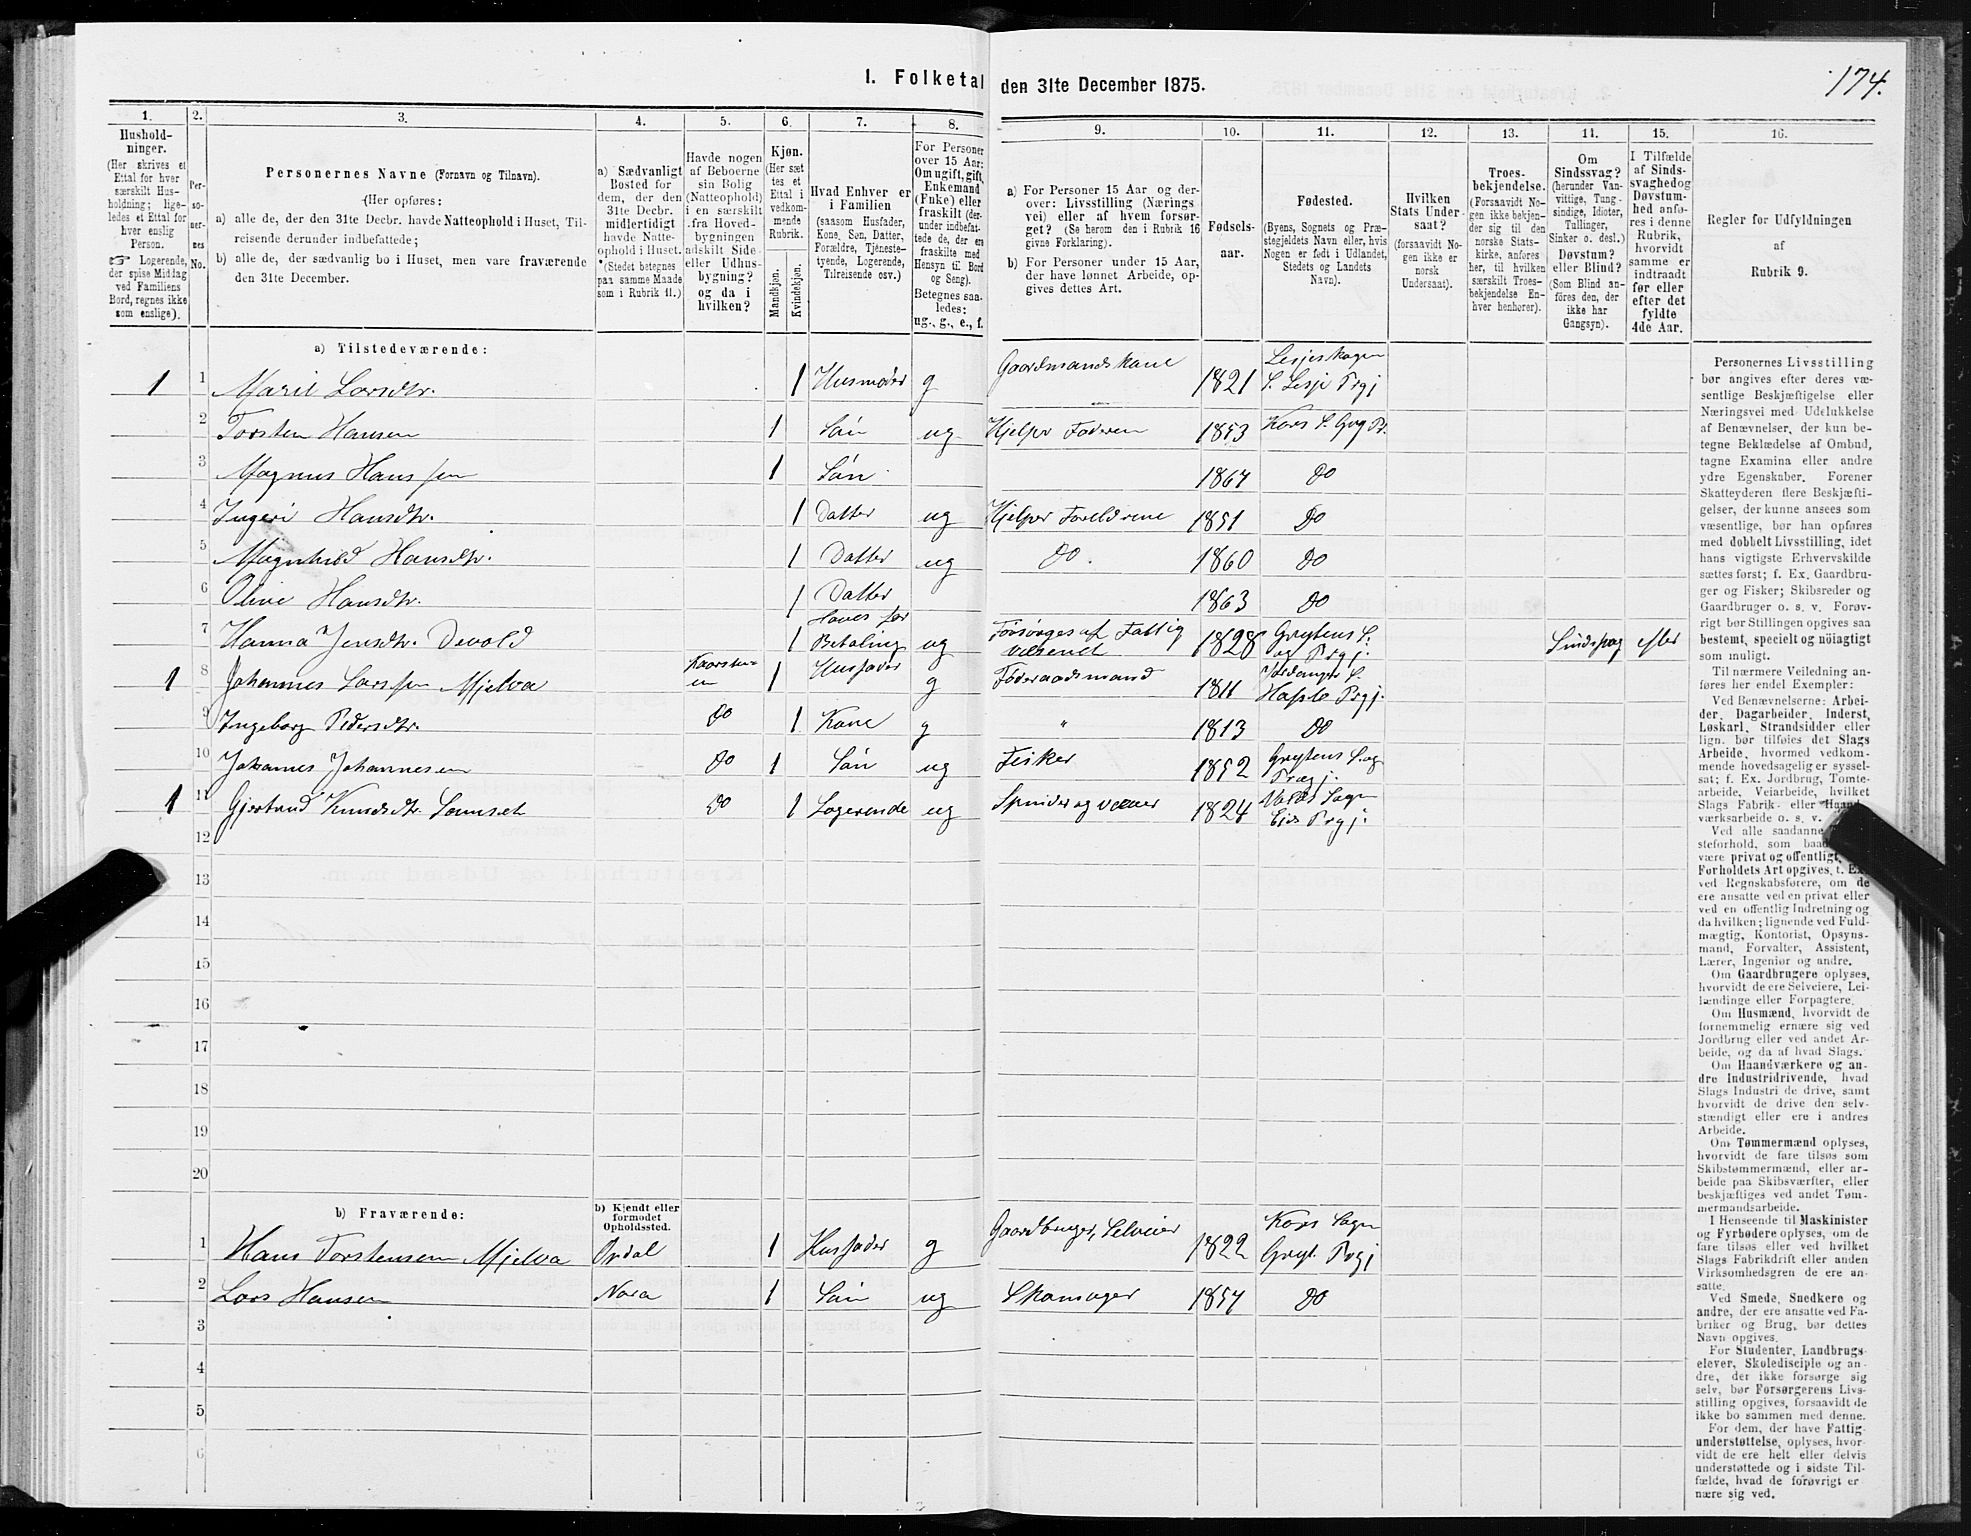 1. Folketal den 31te December 1875.
174.
1.
Hushold-
ninger.
(Her skrives et
Ettal for hver
særskilt Hus-
holdning; lige-
ledes et Ettal for
hver enslig
Person.
☞ Logerende,
der spise Middag
ved Familiens
Bord, regnes ikke
som enslige).
2.
Per-
so-
ner-
nes
No.
3.
Personernes Navne (Fornavn og Tilnavn).
(Her opføres:
a) alle de, der den 31te Decbr. havde Natteophold i Huset, Til-
reisende derunder indbefattede;
b) alle de, der sædvanlig bo i Huset, men vare fraværende
den 31te December.
4.
a) Sædvanligt
Bosted for
dem, der den
31te Decbr.
midlertidigt
havde Natte-
ophold i Huset.
(Stedet betegnes
paa samme Maade
som i Rubrik 11.)
5.
Havde nogen
af Beboerne
sin Bolig
(Natteophold)
i en særskilt
fra Hoved-
bygningen
adskilt Side-
eller Udhus-
bygning?
og da i
hvilken?
6.
Kjøn.
(Her sæt
tes et
Ettal i
vedkom-
mende
Rubrik.
Mandkjøn.
Kvindekjøn.
7.
Hvad Enhver er
i Familien
(saasom Husfader,
Kone, Søn, Datter,
Forældre, Tjeneste-
tyende, Logerende,
Tilreisende osv.)
8.
For Personer
over 15 Aar:
Om ugift, gift,
Enkemand
(Enke) eller
fraskilt (der-
under indbefat-
tede de, der ere
fraskilte med
Hensyn til Bord
og Seng).
Betegnes saa-
ledes:
ug., g., e., f.
9.
a) For Personer 15 Aar og der-
over: Livsstilling (Nærings
vei) eller af hvem forsør-
get? (Se herom den i Rubrik 16
givne Forklaring).
b) For Personer under 15 Aar,
der have lønnet Arbeide, op-
gives dettes Art.
10.
Fødsels-
aar.
11.
Fødested.
(Byens, Sognets og Præ-
stegjeldets Navn eller, hvis
Nogen er født i Udlandet,
Stedets og Landets
Navn).
12.
Hvilken
Stats Under-
saat?
(forsaavidt No-
gen ikke er
norsk
Undersaat).
13.
Troes-
bekjendelse.
(Forsaavidt No-
gen ikke bekjen-
der sig til den
norske Stats-
kirke, anføres
her, til hvilken
særskilt Troes-
bekjendelse En-
hver henhører).
14.
Om
Sindssvag?
(herunder Van-
vittige, Tung-
sindige, Idioter,
Tullinger,
Sinker o. desl.)
Døvstum?
eller Blind?
(Som Blind an-
føres den, der
ikke har
Gangsyn).
15.
I Tilfælde
af Sinds-
svaghedog
Døvstum-
hed anfø-
res i denne
Rubrik,
hvorvidt
samme er
indtraadt
før eller
efter det
fyldte
4de Aar.
16.
Regler for Udfyldningen
af
Rubrik 9.
a) Tilstedeværende:
1 1 Marit Larsdtr. 1 Husmoder g Gaardmandskone 1821 Lesjeskogen S. Lesje Prgj
2 Torsten Hansen 1 Søn ug Hjelper Faderen 1853 Kors S. Gryt Pr.
3 Magnus Hanssen 1 Søn 1867 Do
4 Ingeri Hansdtr. 1 Datter ug Hjelper Forældrene 1851 Do
5 Magnhild Hansdtr. 1 Datter ug Do. 1860 Do
6 Oline Hansdtr. 1 Datter 1863 Do
7 Hanna Jensdtr. Devold 1 Haves for Betaling ug Forsørges af Fattigvæsenet 1828 Grytens S. og Prgj. Sindssvag efter
1 8 Johannes Larssen Mjelva 1 Husfader g Føderaadsmand 1811 S. Prgj.
9 Ingeborg Pedersdtr. Do 1 Kone g " 1813 Do
10 Johannes Johannesen Do 1 Søn ug Fisker 1852 Grytens S. og Prægj.
1 11 Gjertrud Knudsdtr. Do 1 Logerende ug Spinder og væver 1824 Sogn Eids Prgj.
12
13
14
15
16
17
18
19
20
b) Fraværende:
b) Kjendt eller
formodet
Opholdssted.
1 Hans Torstensen Mjelva Opdal 1 Husfader g Gaardbruger, Selveier 1822 Kors Sogn Gryt. Prgj
2 Lars Hansen 1 Søn ug Skomager 1857 Do
3
4
5
6
Personernes Livsstilling
bør angives efter deres væ-
sentlige Beskjæftigelse eller
Næringsvei med Udelukkelse
af Benævnelser, der kun be-
tegne Beklædelse af Ombud,
tagne Examina eller andre
ydre Egenskaber. Forener
Skatteyderen flere Beskjæfti-
gelser, der kunne ansees som
væsentlige, bør han opføres
med dobbelt Livsstilling, idet
hans vigtigste Erhvervskilde
sættes først; f. Ex. Gaardbru-
ger og Fisker; Skibsreder og
Gaardbruger o. s. v. Forøv-
rigt bør Stillingen opgives saa
bestemt, specielt og nøiagtigt
som muligt.
Til nærmere Veiledning an-
føres her endel Exempler:
Ved Benævnelserne: Arbei-
der, Dagarbeider, Inderst,
Løskarl, Strandsidder eller
lign. bør tilføies det Slags
Arbeide, hvormed vedkom-
mende hovedsagelig er syssel-
sat; f. Ex. Jordbrug, Tomte-
arbeide, Veiarbeide, hvilket
Slags Fabrik- eller Haand-
værksarbeide o. s. v.
Ved alle saadanne
steforhold, som baade
være privat og offentligt,
Forholdets Art opgives, t. Ex.
ved Regnskabsførere, om de
ere ansatte ved en privat eller
ved en offentlig Indretning og
da hvilken; lignende ved Fuld-
mægtig, Kontorist, Opsyns-
mand, Forvalter, Assistent,
Lærer, Ingeniør og andre.
Om Gaardbrugere oplyses,
hvorvidt de ere Selveiere, Lei-
lændinge eller Forpagtere.
Om Husmænd, hvorvidt de
fornemmelig ernære sig ved
Jordbrug eller ved andet Ar-
beide, og da af hvad Slags.
Om Haandværkere og an-
dre Industridrivende, hvad
Slags Industri de drive, samt
hvorvidt de drive den selv-
stændigt eller ere i andres
Arbeide.
Om Tømmermænd oplyses,
hvorvidt de fare tilsøs som
Skibstømmermænd, eller ar-
beide paa Skibsværfter, eller
beskjæftiges ved andet Tøm-
mermandsarbeide.
I Henseende til Maskinister
og Fyrbødere oplyses, om de
fare tilsøs eller ved hvilket
Slags Fabrikdrift eller anden
Virksomhedsgren de ere an-
satte.
Ved Smede, Snedkere og
andre, der ere ansatte ved Fa-
briker og Brug, bør dettes
Navn opgives.
For Studenter, Landbrugs-
elever, Skoledisciple og an-
dre, der ikke forsørge sig
selv, bør Forsørgerens Livs-
stilling opgives, forsaavidt de
ikke bo sammen med denne.
For dem, der have Fattig-
understøttelse, oplyses, hvor-
vidt de ere helt eller delvis
understøttede og i sidste Til-
fælde, hvad de forøvrigt er-
nære sig ved.